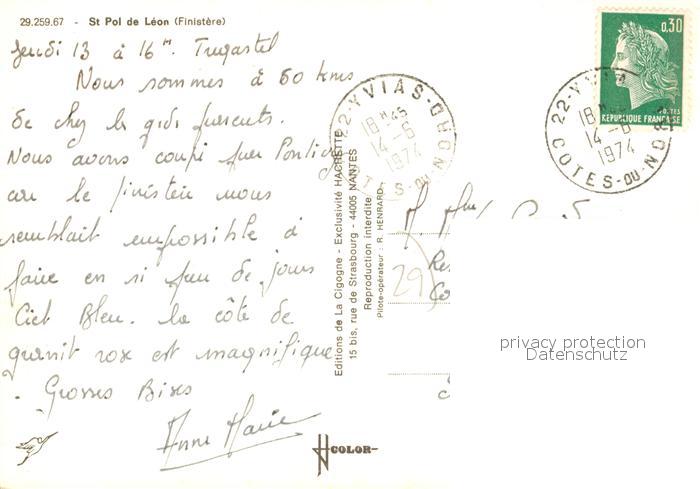 29.259.67 - St Pol de Léon (Finistère)
Jeudi 13 à 16 H. Trégastel
Nous sommes à 60 kms
de chez la
Nous avons coupé par Pontivy
car le finistère nous
semblait impossible à
faire en si peu de jours
Ciel Bleu. la côte de
granit rose est magnifique
. Grosses Bises
Anne Marie
Editions de La Cigogne - Exclusivité HACHETTE
15 bis, rue de Strasbourg - 44005 NANTES
Reproduction interdite
Pilote-opérateur : R. HENRARD
COLOR
0,30
POSTES
REPUBLIQUE FRANÇAISE
22-YVIAS-
18 H 45
14-6
1974
COTES-DU-NORD
22-YVIAS
18 H 45
14-6
1974
COTES-DU-NORD
29
privacy protection
Datenschutz